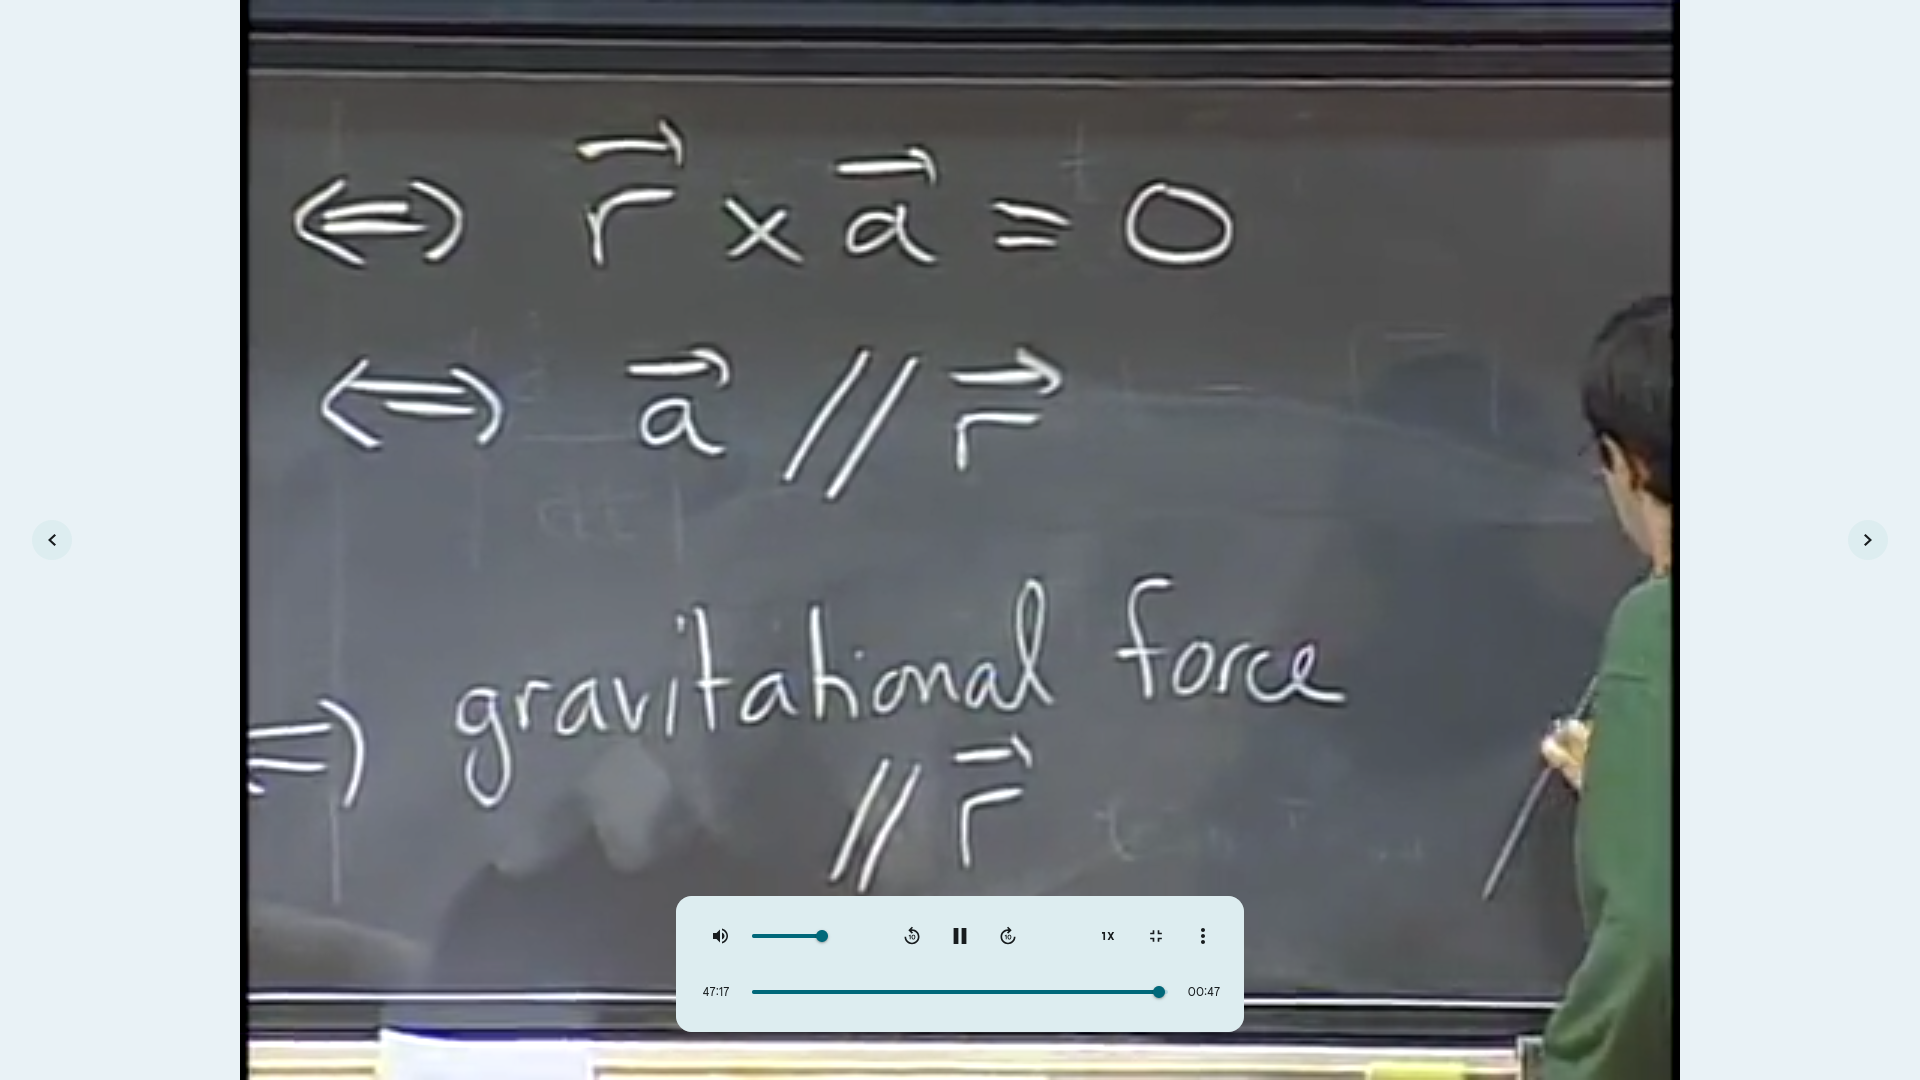 ⇔ r⃗ × a⃗ = 0
⇔ a⃗ // r⃗
⇔ gravitational force
// r⃗
10 10 1X
47:17 00:47